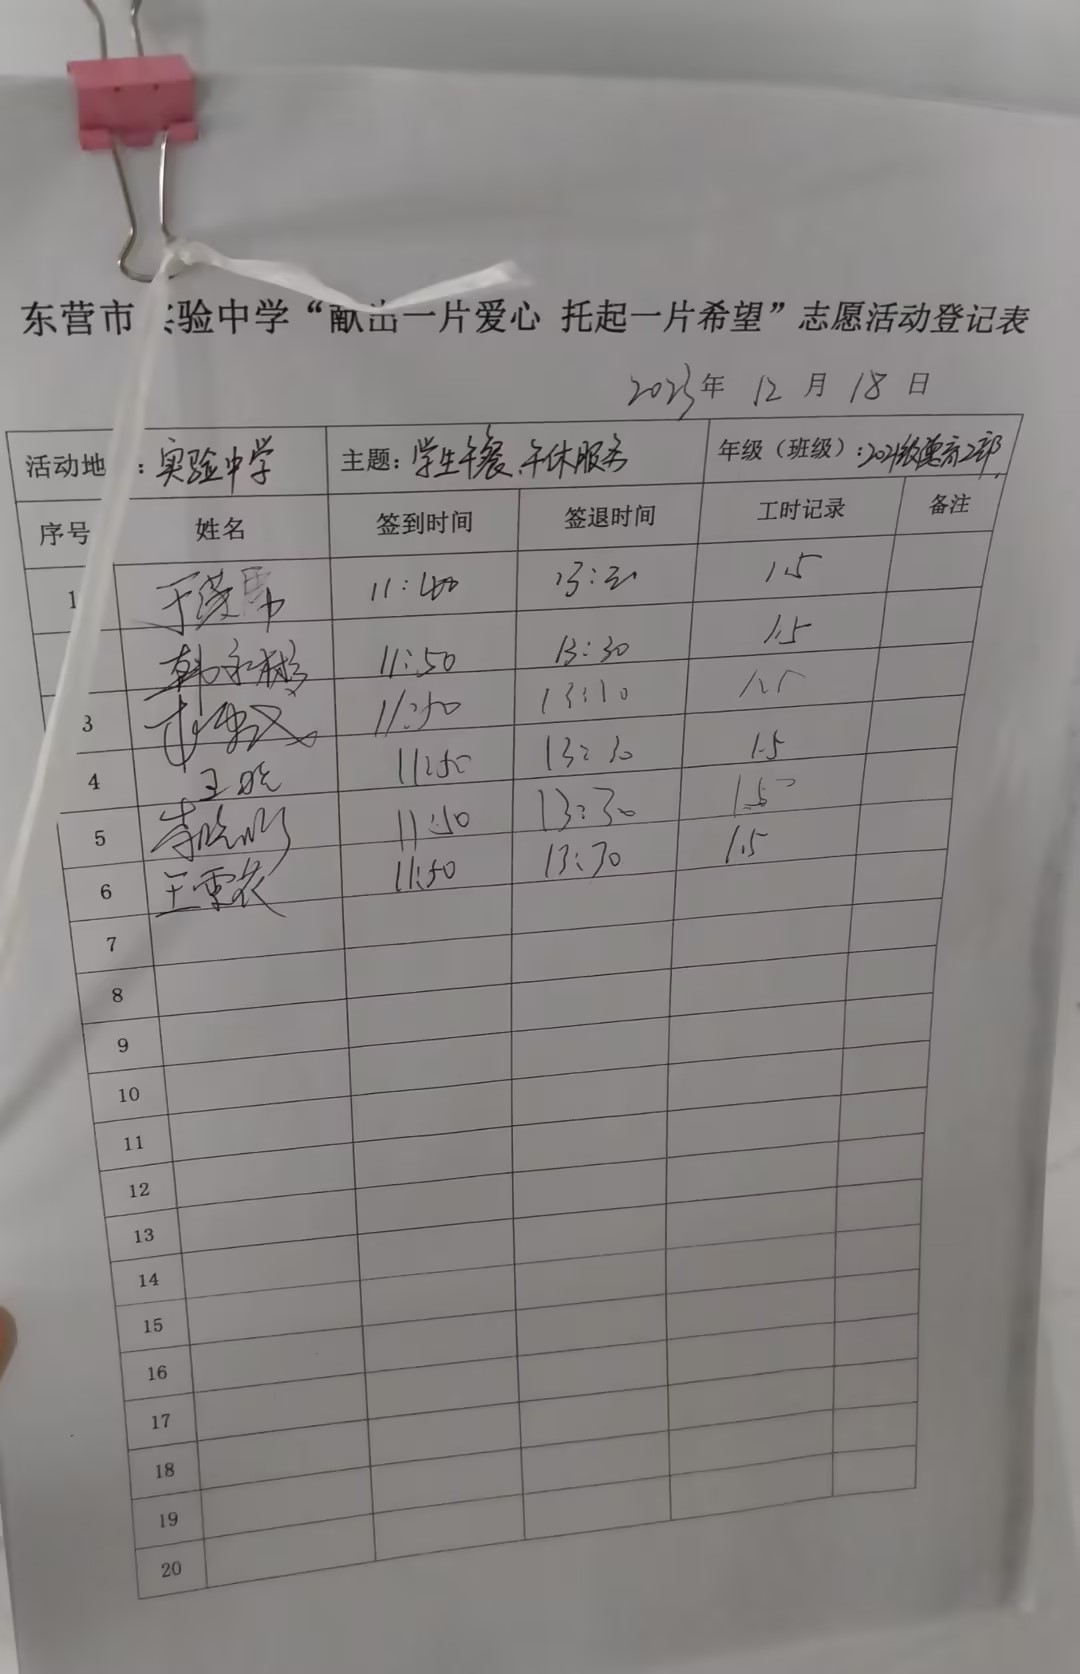 东营市实验中学“献出一片爱心 托起一片希望”志愿活动登记表
2023年 12 月 18 日
活动地：实验中学 主题：学生午餐、午休服务 年级（班级）：2021级德育工部
序号 姓名 签到时间 签退时间 工时记录 备注
1 于 11:40 13:30 1.5
韩永彬 11:50 13:30 1.5
3 11:50 13:30 1.5
4 王晓 11:50 13:30 1.5
5 李晓明 11:50 13:30 1.5
6 王雪 11:50 13:30 1.5
7
8
9
10
11
12
13
14
15
16
17
18
19
20